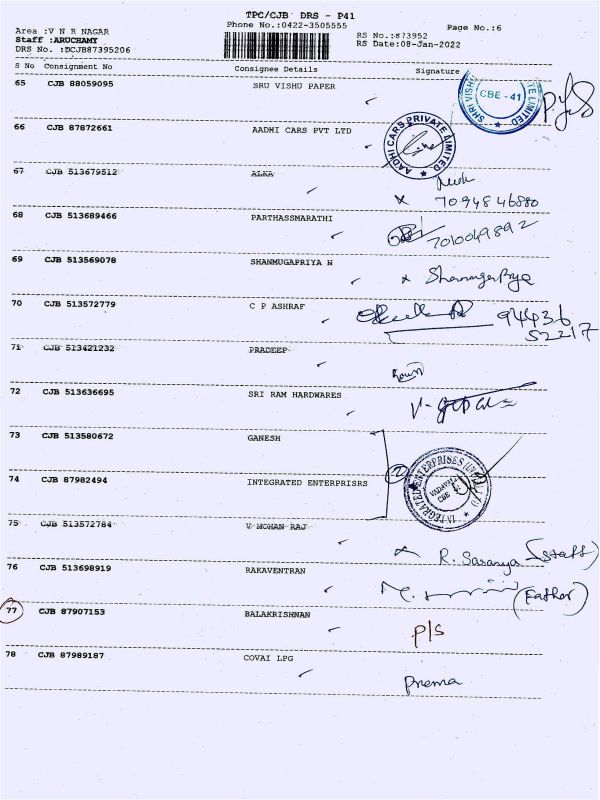 TPC/CJB DRS - P41
Phone No.:0422-3505555
Page No.:6
Area :V N R NAGAR
Staff :ARUCHAMY
DRS No. :DCJB87395206
RS No.:873952
RS Date:08-Jan-2022
S No Consignment No Consignee Details Signature
65 CJB 88059095 SRU VISHU PAPER
CBE - 41
SHRI VISHU
TE LIMITED
66 CJB 87872661 AADHI CARS PVT LTD
AADHI CARS PRIVATE LIMITED
67 CJB 513679512 ALKA
7094846880
68 CJB 513689466 PARTHASSMARATHI
7010049892
69 CJB 513569078 SHANMUGAPRIYA N
70 CJB 513572779 C P ASHRAF
94436
52217
71 CJB 513421232 PRADEEP
72 CJB 513636695 SRI RAM HARDWARES
V-Gopal
73 CJB 513580672 GANESH
2
74 CJB 87982494 INTEGRATED ENTERPRISRS
INTEGRATED ENTERPRISES
CBE
75 CJB 513572784 V MOHAN RAJ
R. Saranya (Staff)
76 CJB 513698919 RAKAVENTRAN
(Father)
77 CJB 87907153 BALAKRISHNAN
P/S
78 CJB 87989187 COVAI LPG
Prema